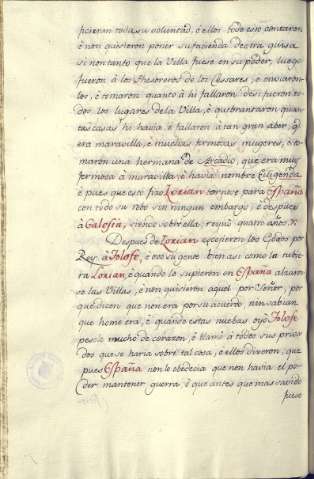 ficieran toda su voluntad, é ellos todo esto contaron,
é non quisieron poner su facienda de otra guisa,
si non tanto que la Villa fuese en su poder; luego
fueron à los Thesoreros de los Cesares, é
é tomaron quanto à hi fallaron: desi fueron to-
dos los lugares de la Villa, é quebrantaron quan-
tas casas hi havia, é fallaron à tan gran aber, que
era maravilla, é muchas fermosas mugeres, é to-
maron una hermana de Arcadio, que era muy
fermosa à maravilla, è havia nombre
è pues que esto fizo Lorian tornose para España
con todo su robo sin ningun embargo, è despues
à Galosia, viendo sobre ella, reynò quatro años.
Despues de Lorian escojeron los Godos por
Rey, à Jolofe, è ovo su gente bien asi como la tubie-
ra Lorian, è quando lo supieron en España alzaron-
se las Villas, è non quisieron aquel por Señor, por-
que dicen que non era por su acuerdo nin sabian
que home era, è quando estas nuebas oyò Jolofe
pesòle mucho de corazon, è llamò à todos sus priva-
dos que se haria sobre tal cosa, è ellos dixeron, que
pues España non le obedecia que non havia el po-
der mantener guerra, è que antes que mas sabido
fuese